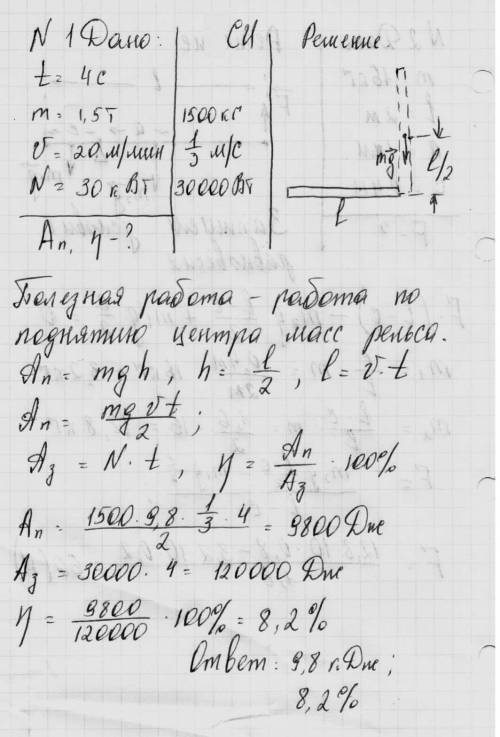 N 1 Дано: СИ Решение
t = 4 с
m = 1,5 т 1500 кг
v = 20 м/мин 1/3 м/с
N = 30 кВт 30000 Вт
Aп, η - ?
mg
l/2
l
Полезная работа - работа по
поднятию центра масс рельса.
Aп = mgh, h = l/2, l = v · t
Aп = mgvt/2;
Aз = N · t, η = Aп/Aз · 100%
Aп = 1500 · 9,8 · 1/3 · 4/2 = 9800 Дж
Aз = 30000 · 4 = 120000 Дж
η = 9800/120000 · 100% = 8,2%
Ответ: 9,8 кДж;
8,2%